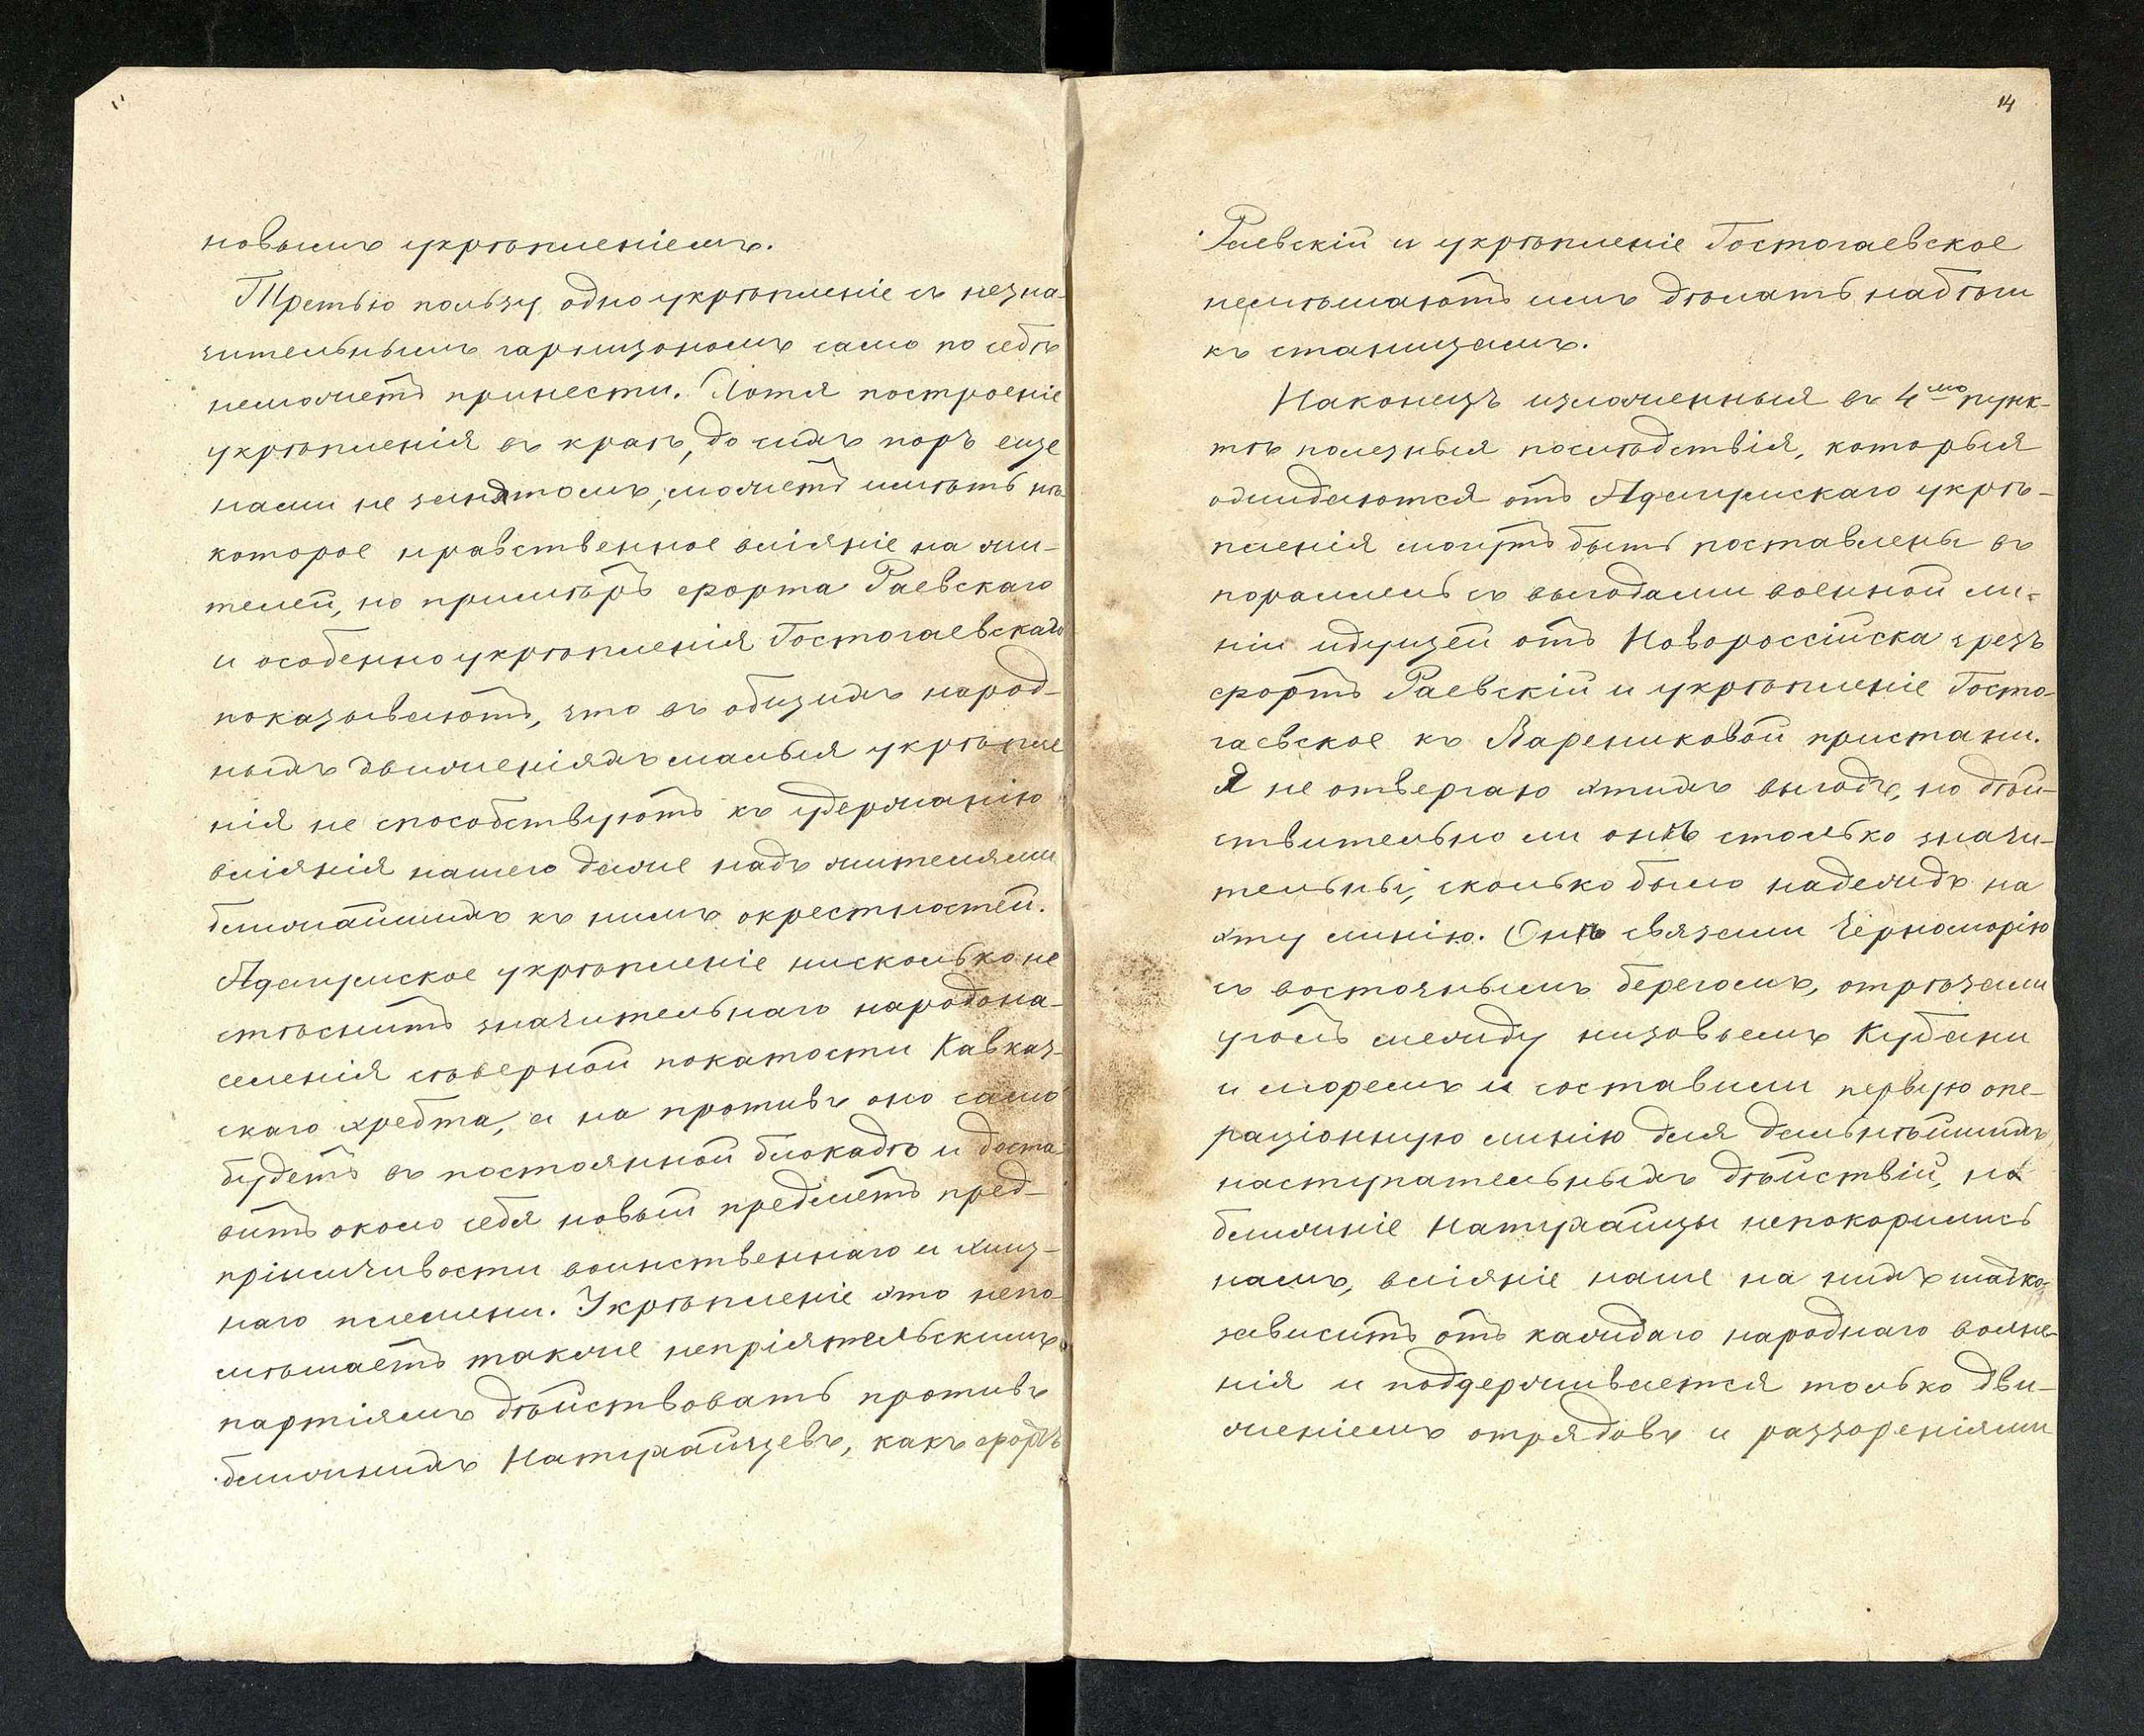 новымъ укрѣпленіемъ.
Третью пользу одно укрѣпленіе съ незна-
чительнымъ гарнизономъ само по себѣ
неможетъ принести. Хотя построеніе
укрѣпленія въ краѣ, до сихъ поръ еще
нами не занятомъ, можетъ имѣть нѣ-
которое нравственное вліяніе на жи-
телей, но примѣръ форта Раевскаго
и особенно укрѣпленія Гостогаевскаго
показываютъ, что въ общихъ народ-
ныхъ движеніяхъ малыя укрѣпле
нія не способствуютъ къ удержанію
вліянія нашего даже надъ жителями
ближайшихъ къ нимъ окрестностей.
Адагумское укрѣпленіе нисколько не
стѣснитъ значительнаго народона-
селенія сѣверной покатости Кавказ-
скаго хребта, а на противъ оно само
будетъ въ постоянной блокадѣ и доста-
витъ около себя новый предметъ пред-
пріимчивости воинственнаго и хищ-
наго племени. Укрѣпленіе это непо-
мѣшаетъ также непріятельскимъ
партіямъ дѣйствовать противъ
ближнихъ Натухайцевъ, какъ фортъ
14
Раевскій и укрѣпленіе Гостогаевское
немѣшаютъ имъ дѣлать набѣги
къ станицамъ.
Наконецъ изложенныя въ 4мъ пунк-
тѣ полезныя послѣдствія, которыя
ожидаются отъ Адагумскаго укрѣ-
пленія могутъ быть поставлены въ
паралель съ выгодами военной ли-
ніи идущей отъ Новороссійска чрезъ
фортъ Раевскій и укрѣпленіе Госто-
гаевское къ Варениковой пристани.
Я не отвергаю этихъ выгодъ, но дѣй-
ствительно ли онѣ столько значи-
тельны, сколько было надеждъ на
эту линію. Онѣ связали Черноморію
съ восточнымъ берегомъ, отрѣзали
уголъ между низовьемъ Кубани
и моремъ и составили первую опе-
раціонную линію для дальнѣйшихъ
наступательныхъ дѣйствій, но
ближніе Натухайцы непокорились
намъ, вліяніе наше на нихъ шатко,
зависитъ отъ каждаго народнаго волне-
нія и поддерживается только дви-
женіемъ отрядовъ и раззореніями